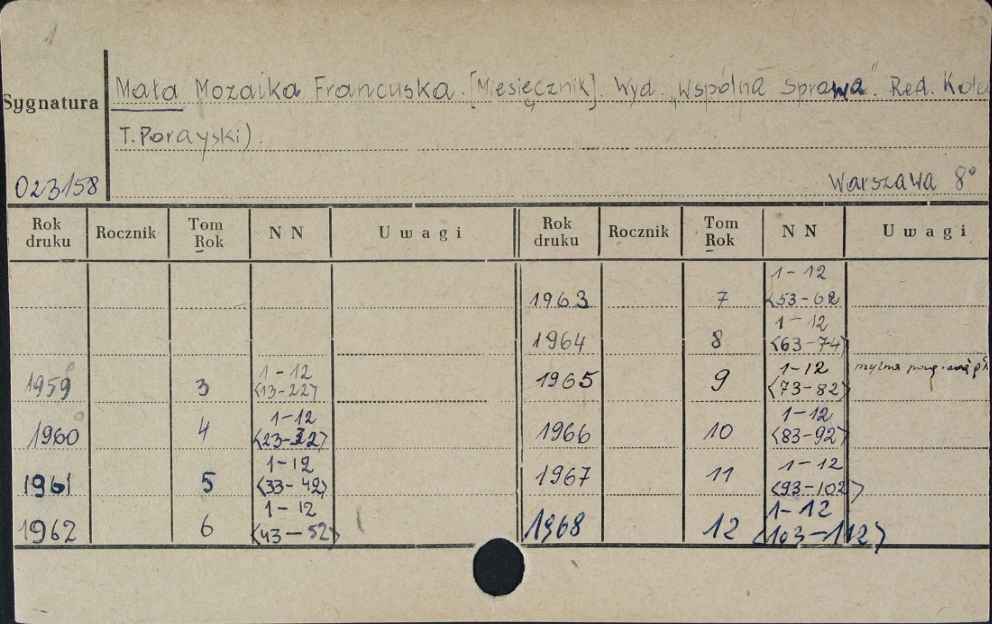 1
Sygnatura
Mała Mozaika Francuska. [Miesięcznik]. Wyd. „Wspólna Sprawa". Red.
T. Porayski).
023158
Warszawa 8°
Rok druku Rocznik Tom Rok NN Uwagi Rok druku Rocznik Tom Rok NN Uwagi
1963 7 1-12 <53-62
1964 8 1-12 <63-74>
1959 3 1-12 <13-22>
1965 9 1-12 <73-82>
1960 4 1-12 <23-32>
1966 10 1-12 <83-92>
1961 5 1-12 <33-42>
1967 11 1-12 <93-102>
1962 6 1-12 <43-52>
1968 12 1-12 <103-112>